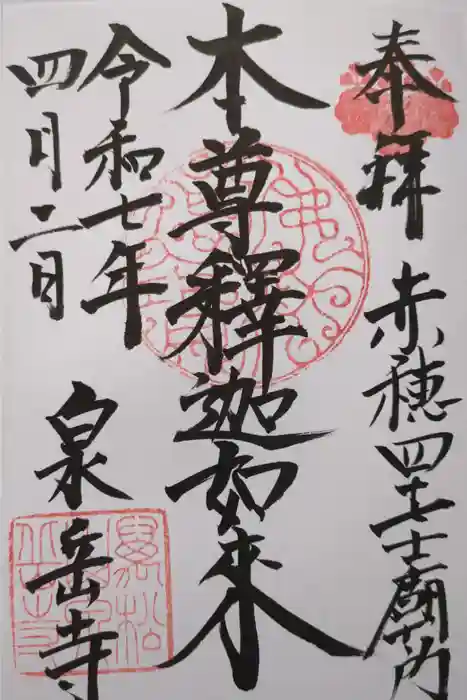 奉拝 赤穂四十七士廟内
本尊釋迦如来
令和七年
四月二日
泉岳寺